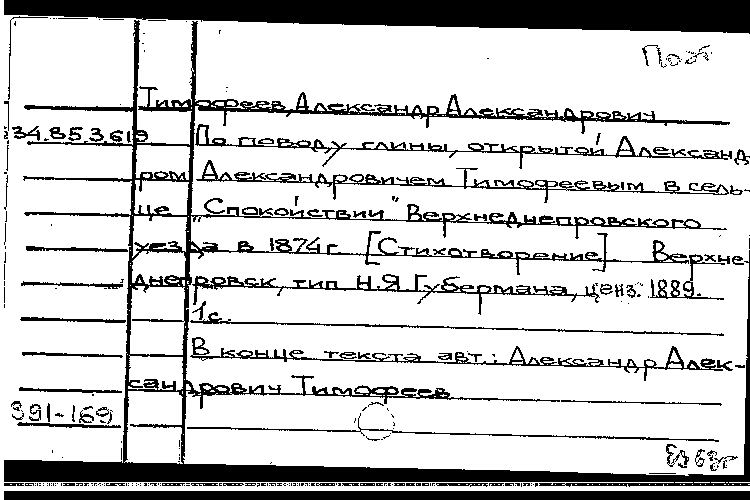 Поэт
Тимофеев, Александр Александрович.
34.85.3.619 По поводу глины, открытой Александ-
ром Александровичем Тимофеевым в сель-
це "Спокойствии" Верхнеднепровского
уезда в 1874г. [Стихотворение]. Верхне-
днепровск, тип. Н.Я Губермана, ценз. 1889.
1с.
В конце текста авт.: Александр Алек-
сандрович Тимофеев
391-169